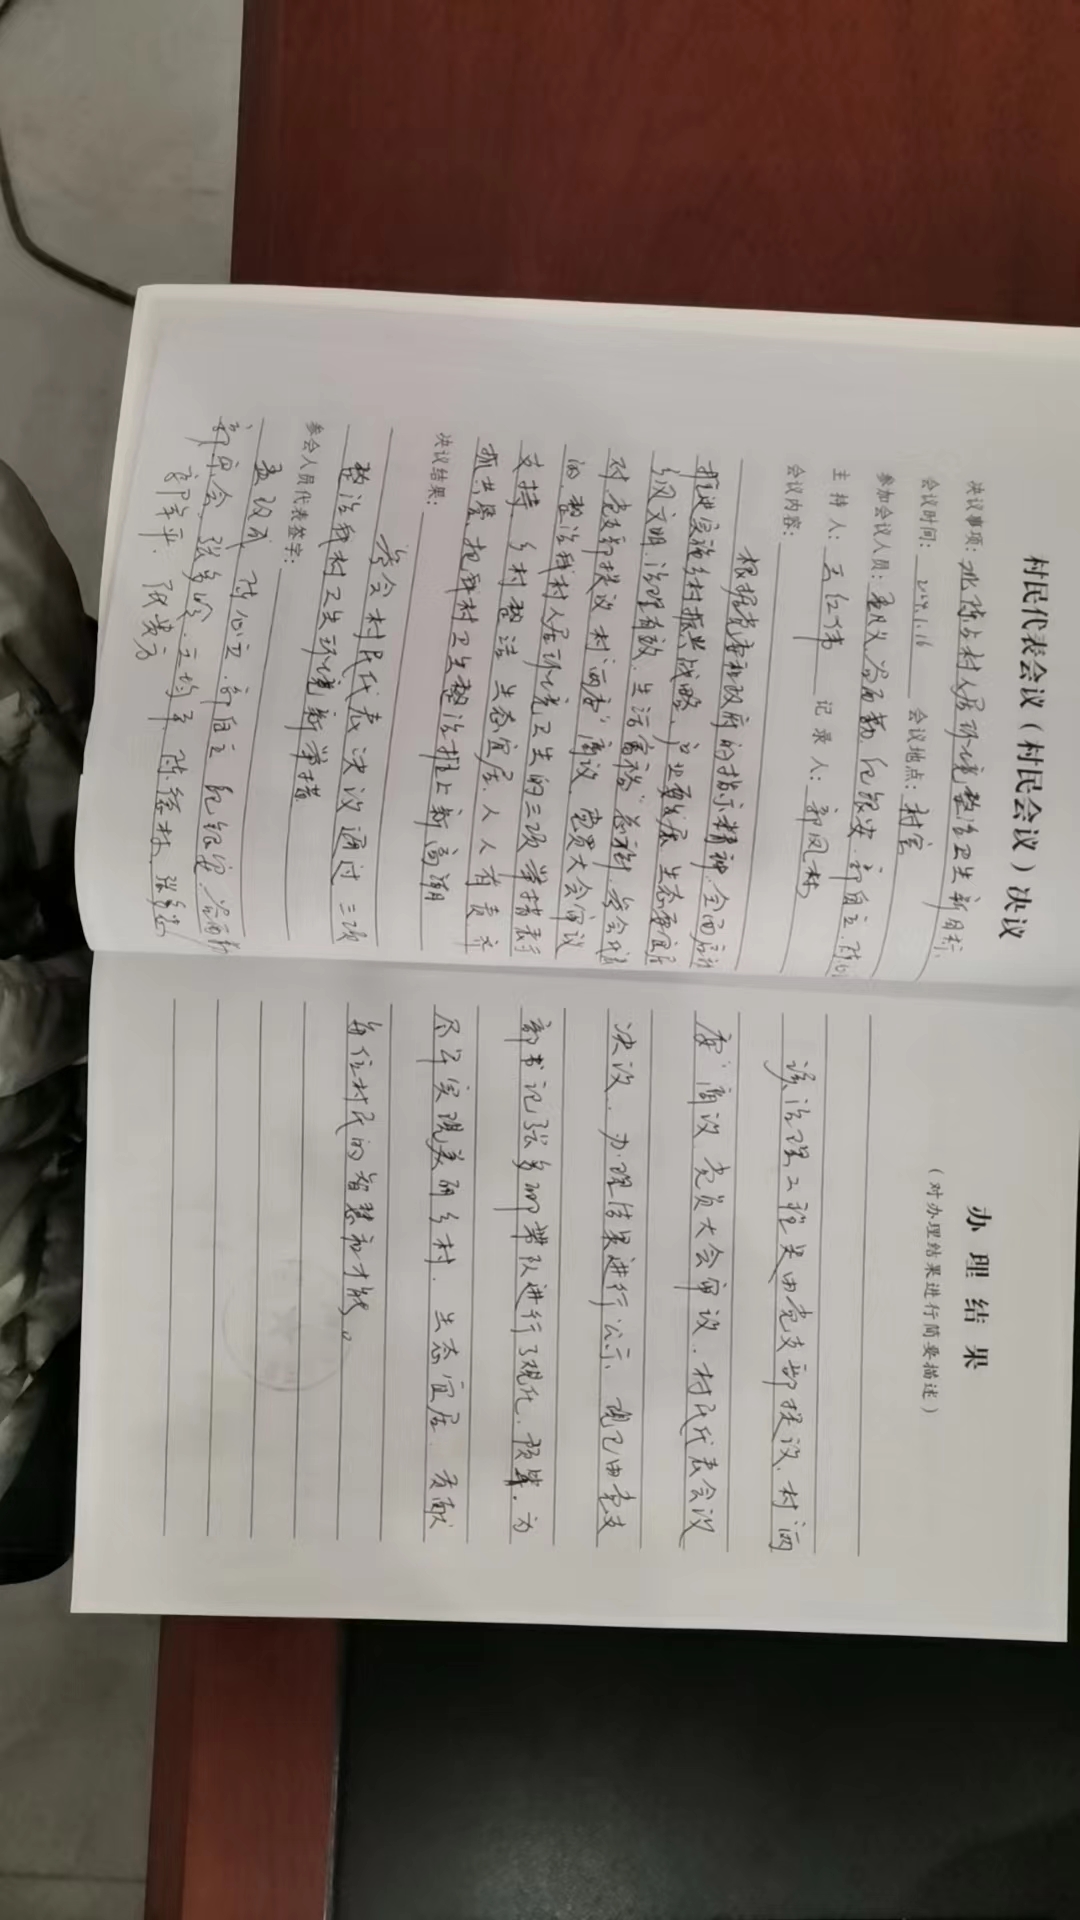 村民代表会议（村民会议）决议
决议事项：北陈占村人居环境整治卫生新目标
会议时间：2019.1.16 会议地点：村室
参加会议人员：纪银安 郭自立
主持人：王红伟 记录人：郭凤林
会议内容：
根据党委和政府的指示精神，全面
推进实施乡村振兴战略，产业要发展 生态要宜居
乡风文明，治理有效，生活富裕
对党支部提议 村"两委"商议，党员大会审议
的整治我村人居环境卫生的三项举措表示
支持，乡村整洁 生态宜居 人人有责 齐
抓共管，把我村卫生整治推上新高潮
决议结果：
参会村民代表决议通过三项
整治我村卫生环境新举措
参会人员代表签字：
孟改成 陈心立 郭自立 纪银安
王均平 陈
张贵方
办理结果
（对办理结果进行简要描述）
该治理工程是由党支部提议，村两
委"商议，党员大会审议，村民代表会议
决议，办理结果进行公示，现已由党支
部书记张多 带队进行了规化、预算，为
尽早实现美丽乡村，生态宜居 贡献
每位村民的智慧和才能。